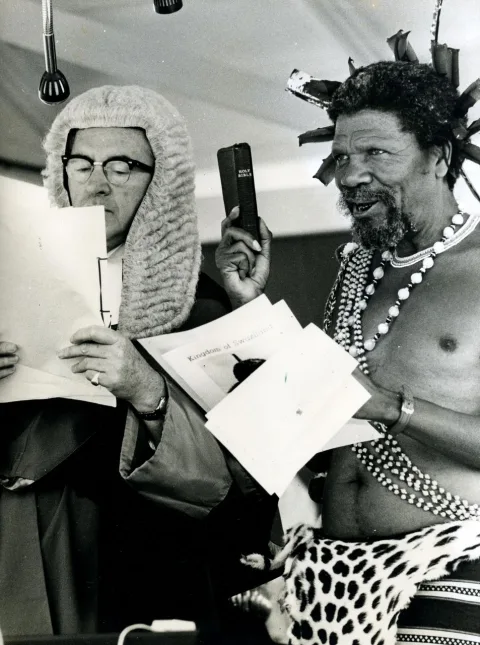 HOLY
BIBLE
Kingdom of Swaziland